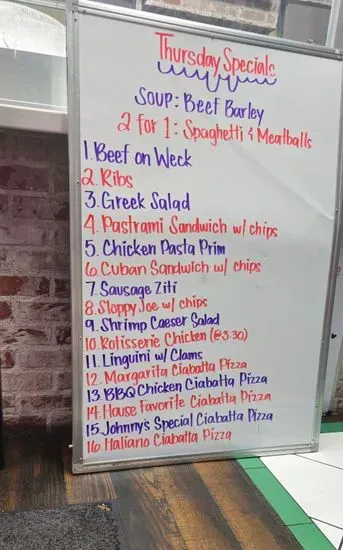 Thursday Specials
Soup: Beef Barley
2 for 1: Spaghetti & Meatballs
1. Beef on Weck
2. Ribs
3. Greek Salad
4. Pastrami Sandwich w/ chips
5. Chicken Pasta Prim
6. Cuban Sandwich w/ chips
7. Sausage Ziti
8. Sloppy Joe w/ chips
9. Shrimp Caeser Salad
10. Rotisserie Chicken (@3:30)
11. Linguini w/ Clams
12. Margarita Ciabatta Pizza
13. BBQ Chicken Ciabatta Pizza
14. House Favorite Ciabatta Pizza
15. Johnny's Special Ciabatta Pizza
16. Haliano Ciabatta Pizza